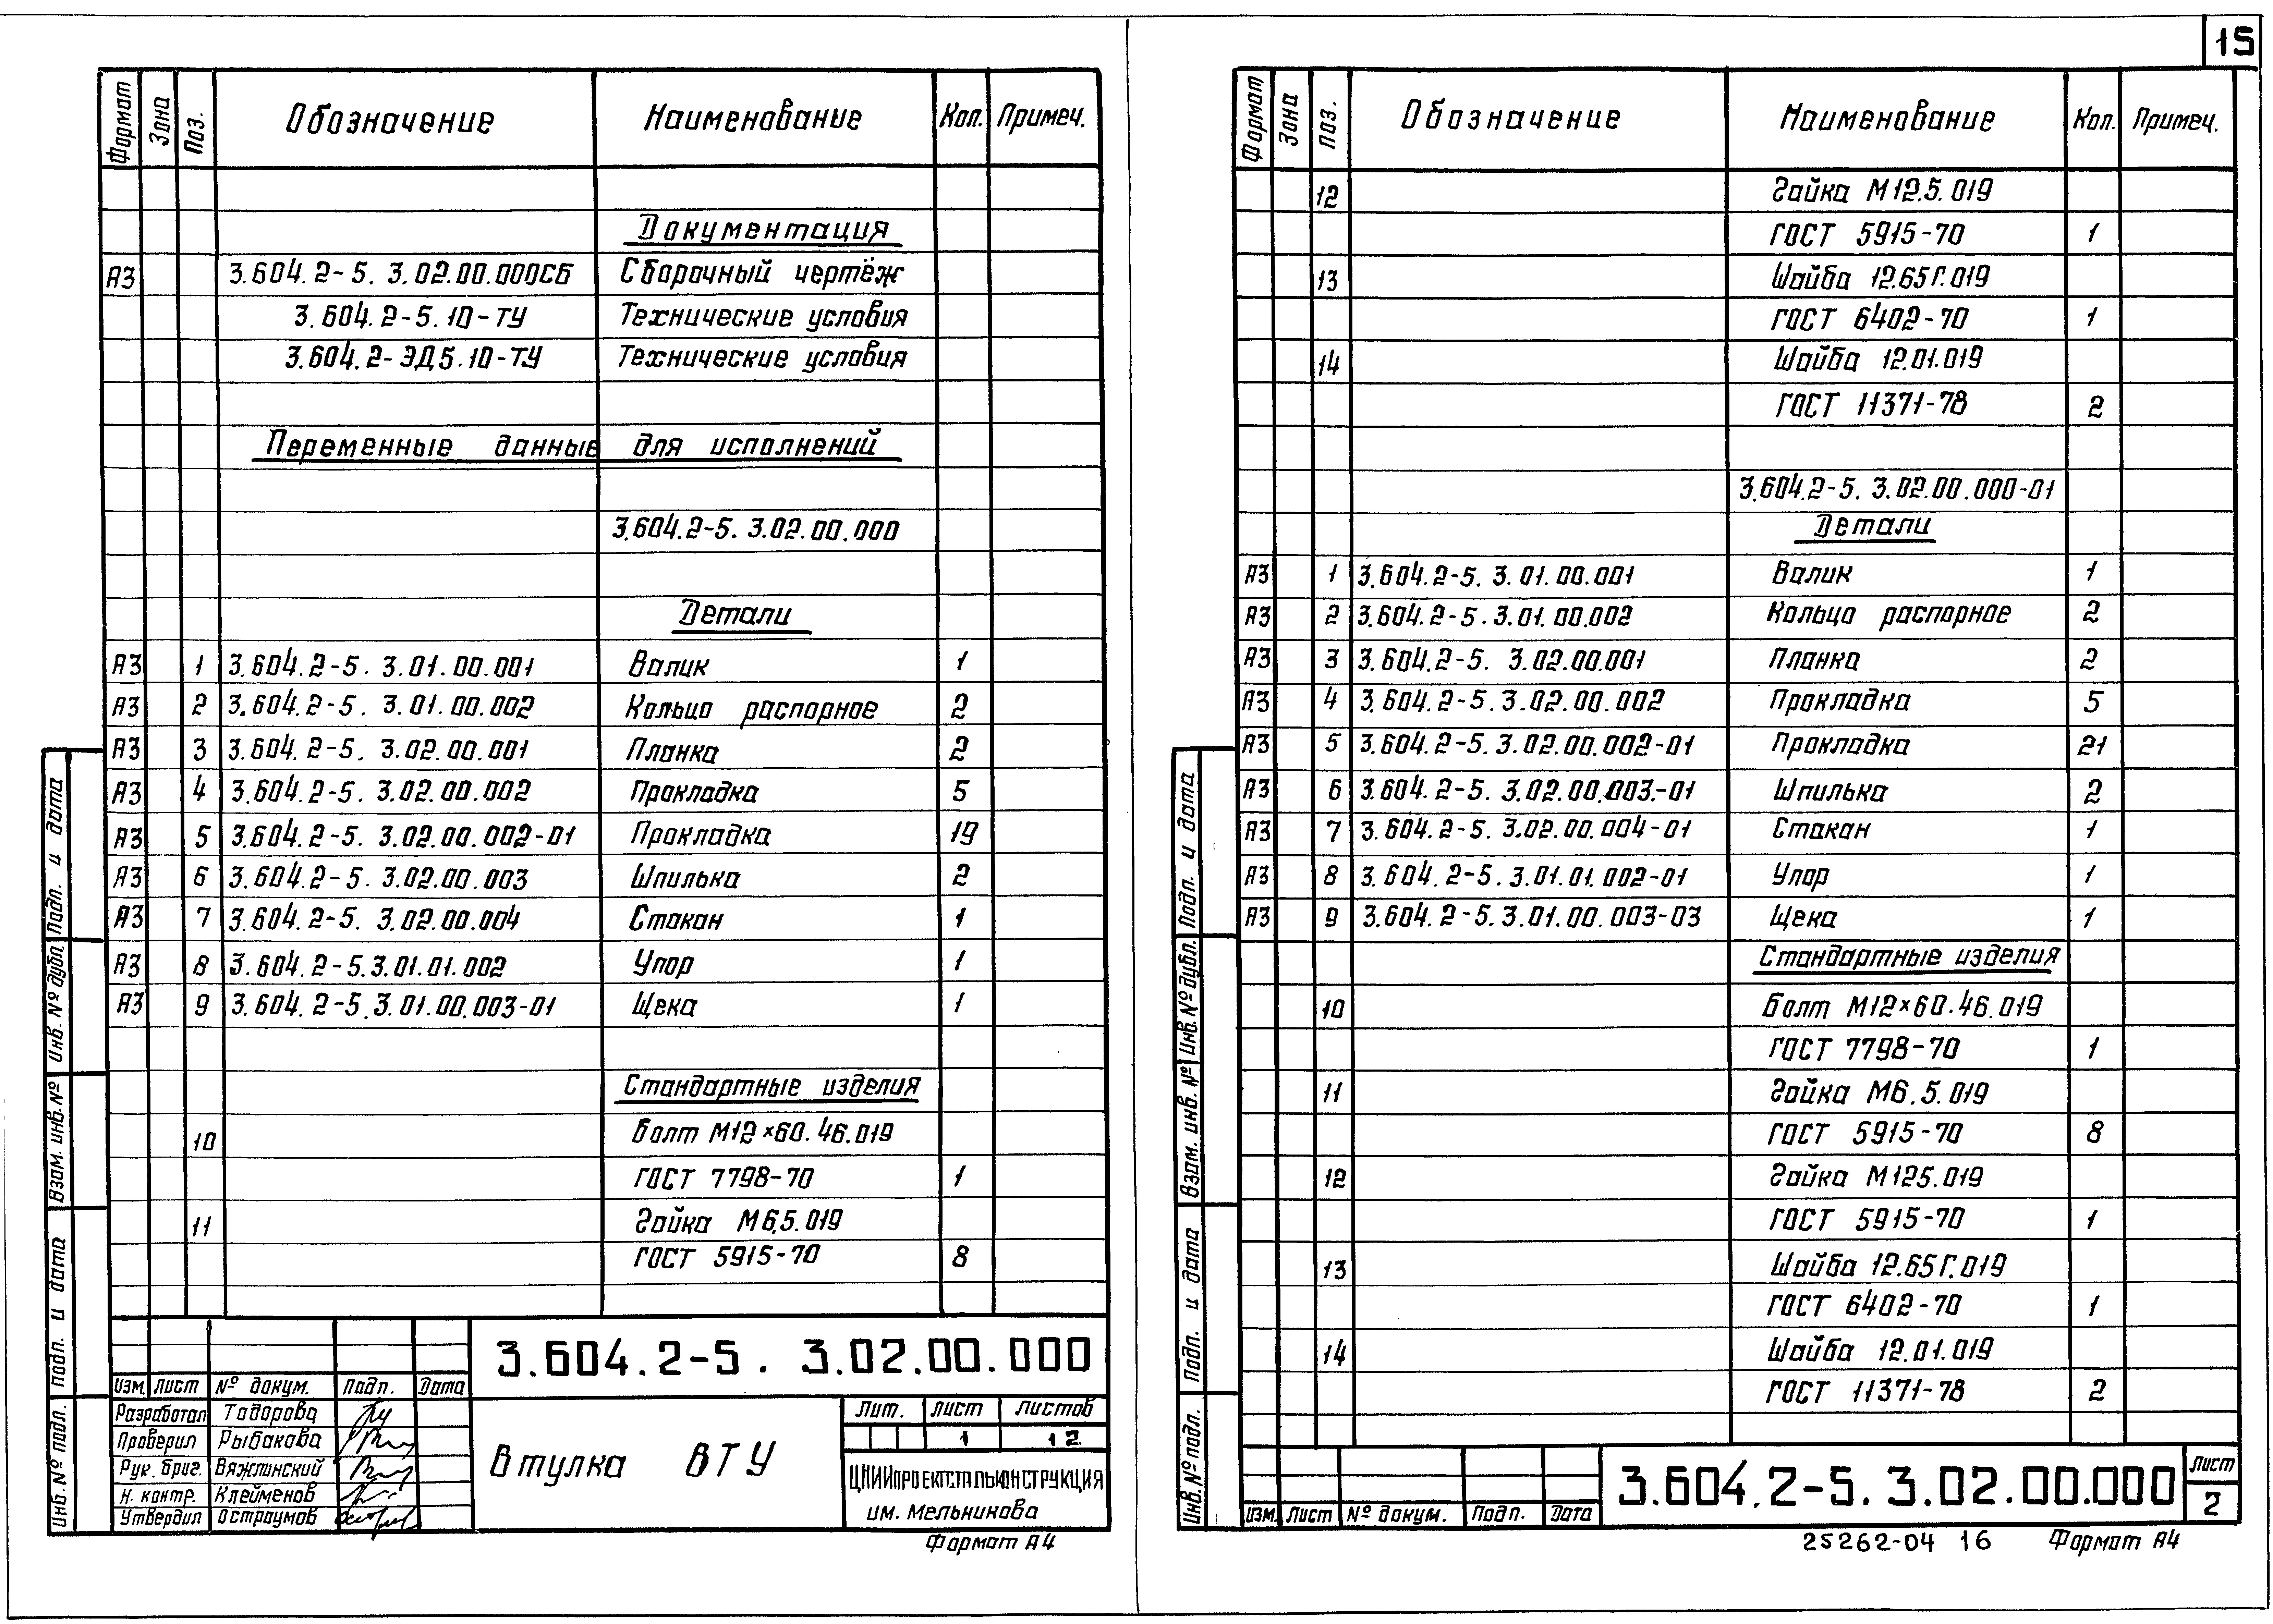 15
Формат Зона Поз. Обозначение Наименование Кол. Примеч.
Документация
А3 3.604.2-5. 3.02.00.000СБ Сборочный чертёж
3.604.2-5.10-ТУ Технические условия
3.604.2-ЭД5.10-ТУ Технические условия
Переменные данные для исполнений
3.604.2-5. 3.02.00.000
Детали
А3 1 3.604.2-5. 3.01.00.001 Валик 1
А3 2 3.604.2-5. 3.01.00.002 Кольцо распорное 2
А3 3 3.604.2-5. 3.02.00.001 Планка 2
А3 4 3.604.2-5. 3.02.00.002 Прокладка 5
А3 5 3.604.2-5. 3.02.00.002-01 Прокладка 19
А3 6 3.604.2-5. 3.02.00.003 Шпилька 2
А3 7 3.604.2-5. 3.02.00.004 Стакан 1
А3 8 3.604.2-5.3.01.01.002 Упор 1
А3 9 3.604.2-5.3.01.00.003-01 Щека 1
Стандартные изделия
10 Болт М12×60.46.019
ГОСТ 7798-70 1
11 Гайка М6.5.019
ГОСТ 5915-70 8
3.604.2-5. 3.02.00.000
Изм. Лист № докум. Подп. Дата
Разработал Тодорова
Проверил Рыбакова
Рук. бриг. Вяжлинский
Н. контр. Клейменов
Утвердил Остроумов
Втулка ВТУ
Лит. Лист Листов
1 12
ЦНИИПРОЕКТСТАЛЬКОНСТРУКЦИЯ
им. Мельникова
Формат А4
Подп. и дата
Инв. № дубл.
Взам. инв. №
Подп. и дата
Инв. № подл.
Формат Зона Поз. Обозначение Наименование Кол. Примеч.
12 Гайка М12.5.019
ГОСТ 5915-70 1
13 Шайба 12.65Г.019
ГОСТ 6402-70 1
14 Шайба 12.01.019
ГОСТ 11371-78 2
3.604.2-5. 3.02.00.000-01
Детали
А3 1 3.604.2-5. 3.01.00.001 Валик 1
А3 2 3.604.2-5.3.01.00.002 Кольцо распорное 2
А3 3 3.604.2-5. 3.02.00.001 Планка 2
А3 4 3.604.2-5.3.02.00.002 Прокладка 5
А3 5 3.604.2-5.3.02.00.002-01 Прокладка 21
А3 6 3.604.2-5. 3.02.00.003.-01 Шпилька 2
А3 7 3.604.2-5. 3.02.00.004-01 Стакан 1
А3 8 3.604.2-5.3.01.01.002-01 Упор 1
А3 9 3.604.2-5.3.01.00.003-03 Щека 1
Стандартные изделия
10 Болт М12×60.46.019
ГОСТ 7798-70 1
11 Гайка М6.5.019
ГОСТ 5915-70 8
12 Гайка М125.019
ГОСТ 5915-70 1
13 Шайба 12.65Г.019
ГОСТ 6402-70 1
14 Шайба 12.01.019
ГОСТ 11371-78 2
Изм. Лист № докум. Подп. Дата
3.604.2-5. 3.02.00.000
Лист
2
25262-04 16 Формат А4
Подп. и дата
Инв. № дубл.
Взам. инв. №
Подп. и дата
Инв. № подл.